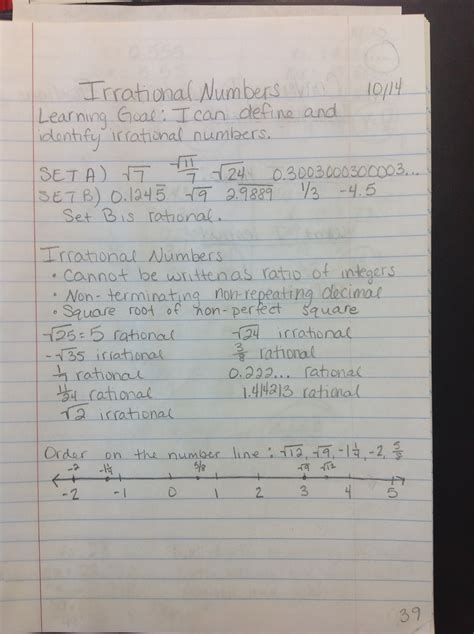 Irrational Numbers 10/14
Learning Goal: I can define and
identify irrational numbers.
SET A) √7 √11/7 √24 0.3003000300003...
SET B) 0.1245̅ √9 2.9889̅ 1/3 -4.5
Set B is rational.
Irrational Numbers
• Cannot be written as ratio of integers
• Non-terminating non-repeating decimal
• Square root of non-perfect square
√25=5 rational √24 irrational
-√35 irrational 3/8 rational
1/7 rational 0.222... rational
11/24 rational 1.414213 rational
√2 irrational
Order on the number line: √12, √9, -1 1/4, -2, 5/8
-2 -1 1/4 5/8 √9 √12
-2 -1 0 1 2 3 4 5
39